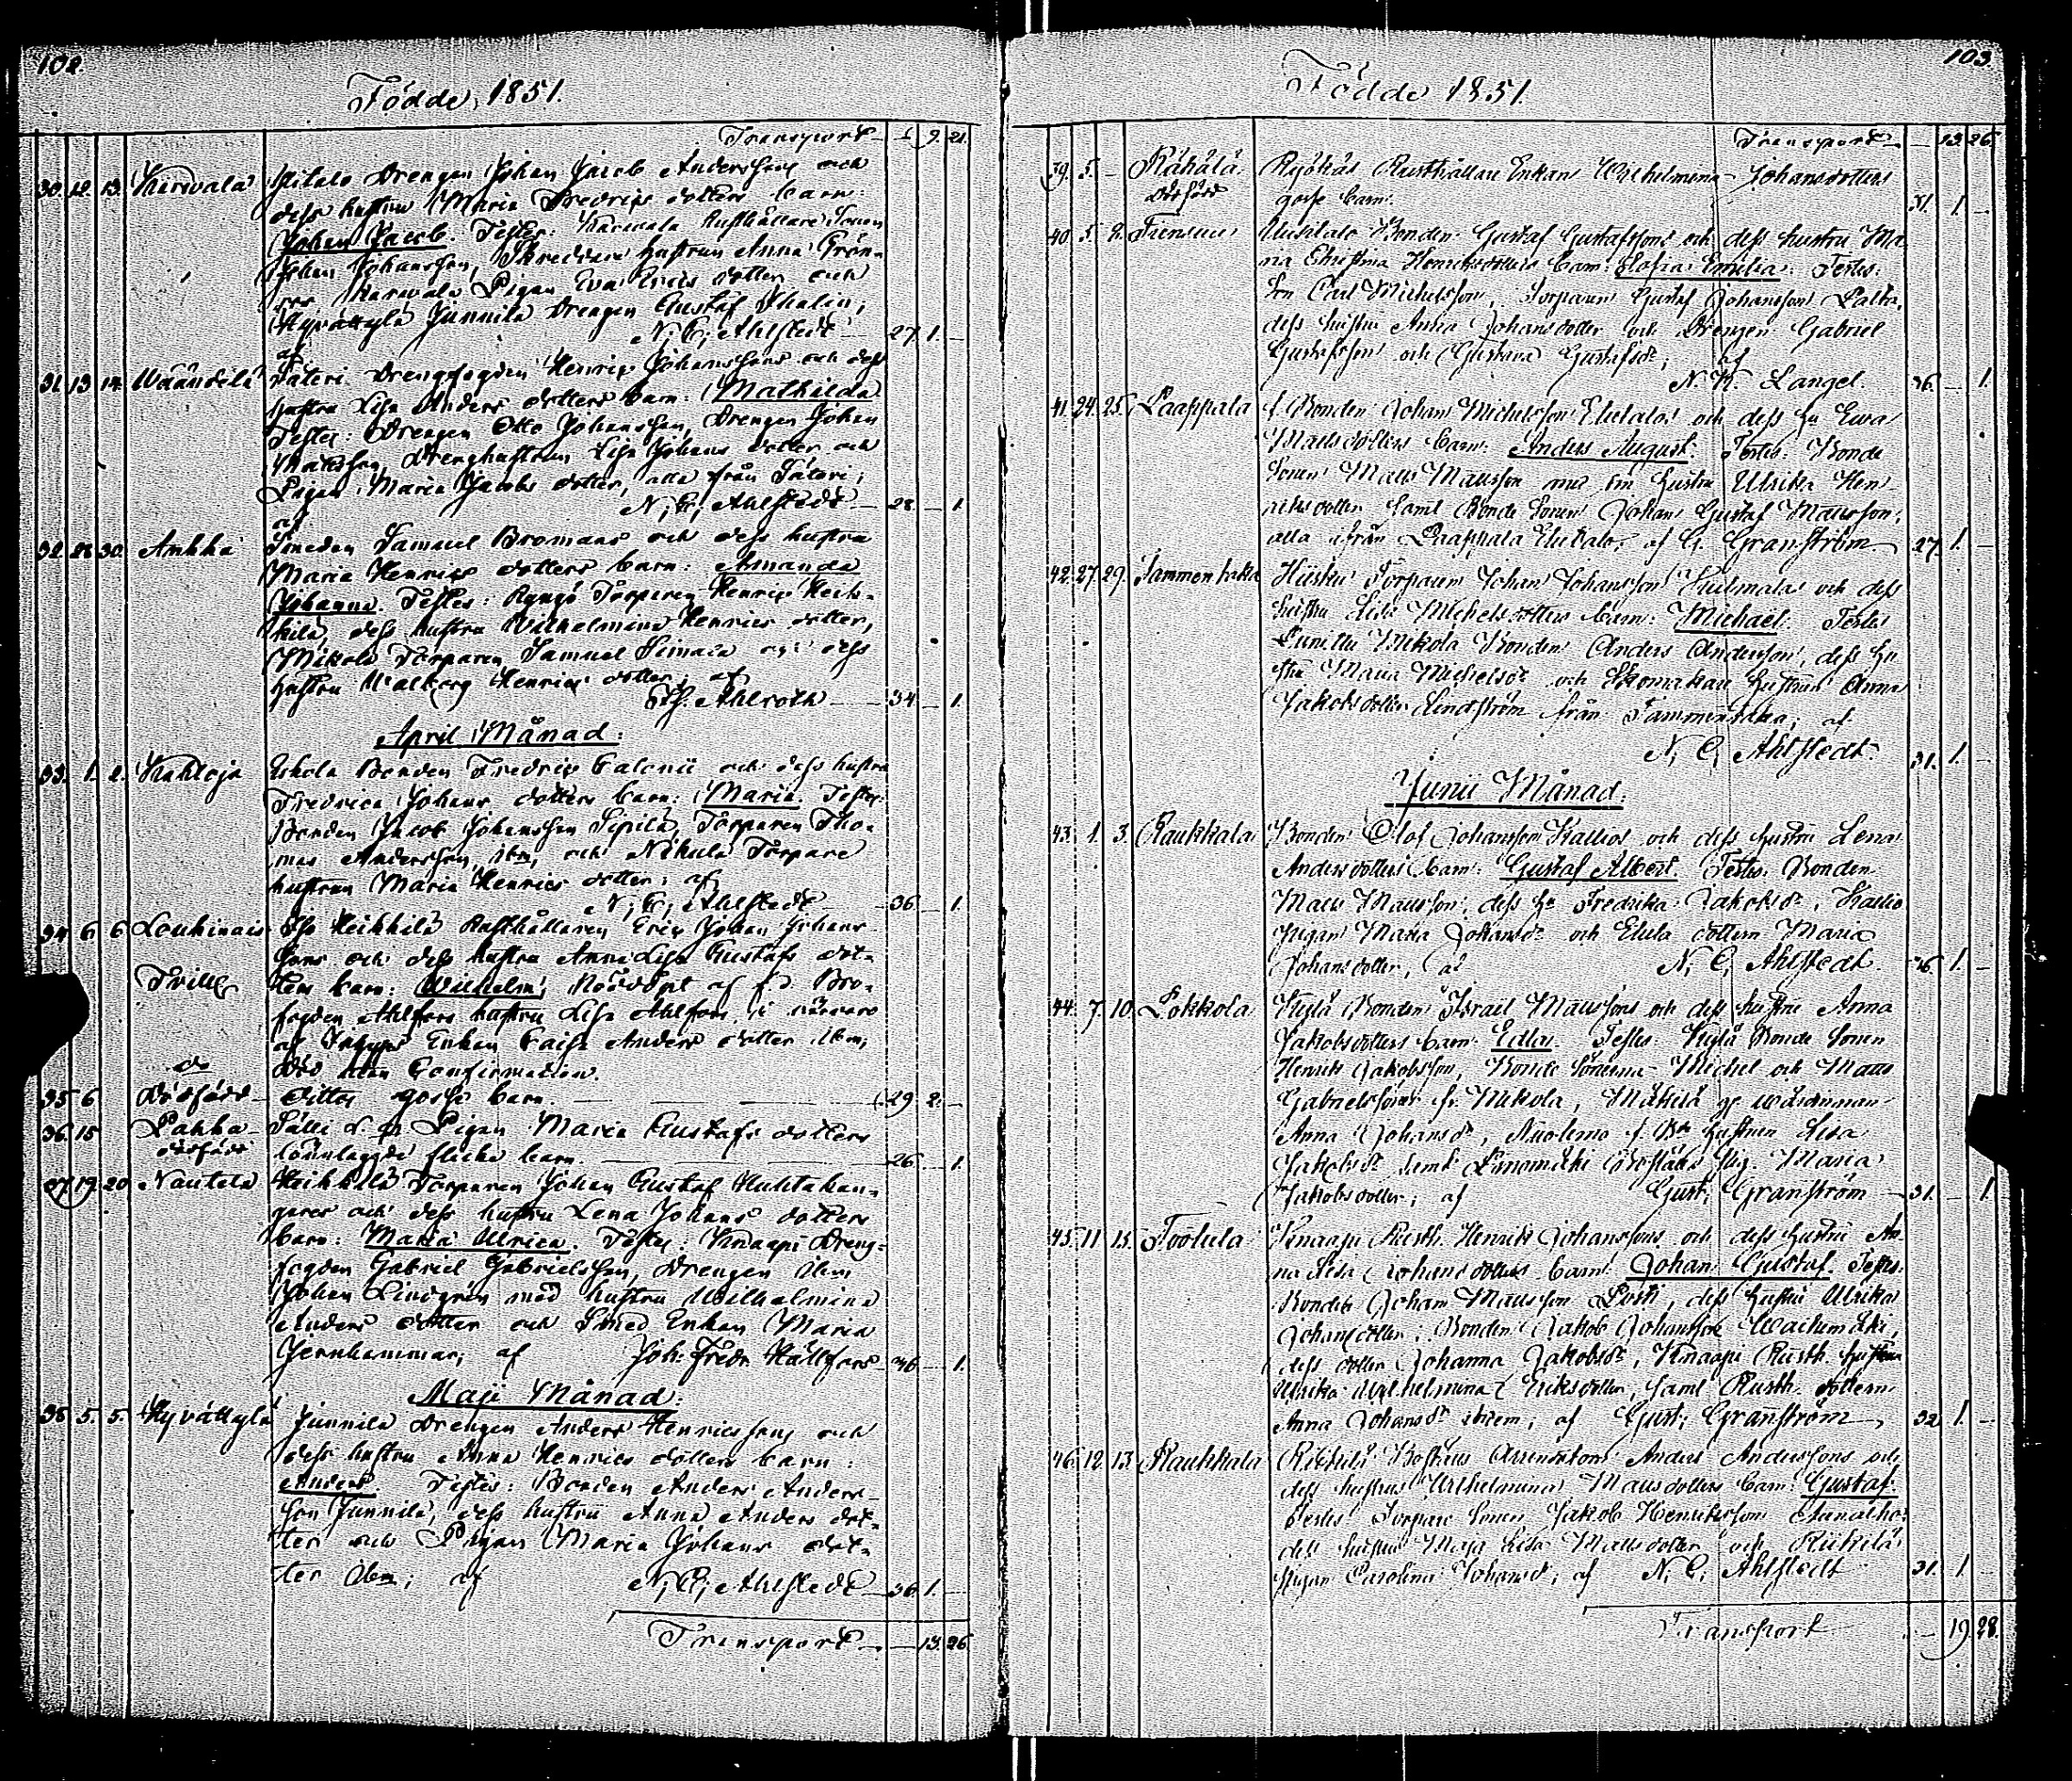 102.
Födde, 1851.
Transport — 9. 21.
30. 12. 13. Karvala Pitalo Drengen Johan Jacob Anderssons och
dess hustru Maria Fredrics dotters barn:
Johan Jacob. Testes: Karvala Rusthållare Sonen
Johan Johansson, Skreddare hustrun Anna Grön-
Karvala Pigan Eva Erics dotter och
Hyvättylä Junnila Drengen Gustaf Thalin;
af N. C. Ahlstedt 27. 1. —
31. 13. 14. Wäändilä Säteri Drengfogden Henric Johanssons och dess
hustru Lisa Anders dotters barn: Mathilda
Testes: Drengen Otto Johansson, Drengen Johan
Matsson, Drenghustrun Lisa Johans dotter och
Pigan Maria Jacobs dotter, alla från Säteri;
af N. C. Ahlstedt — 28. — 1.
32. 28. 30. Ankka Smeden Samuel Bromans och dess hustru
Maria Henrics dotters barn: Amanda
Johanna. Testes: Ryngö Torparen Henric Heik-
kilä, dess hustru Wilhelmina Henrics dotter,
Mikola Torparen Samuel Simala och dess
hustru Walborg Henrics dotter; af
Ahlroth — 34 — 1.
April Månad:
33. 1. 2. Kahloja Eskola Bonden Fredric Calenii och dess hustru
Fredrica Johans dotters barn: Maria. Testes:
Bonden Jacob Johansson Sipilä, Torparen Tho-
mas Andersson, ibm, och Nikula Torpare
hustrun Maria Henrics dotter; af
N. C. Ahlstedt 36. — 1.
34. 6. 6. Loukinais Iso Heikkilä Rusthållaren Eric Johan Johans-
sons och dess hustru Anna Lisa Gustafs dot-
Trill ters barn: Wilhelm, Nöddöpt af f.d. Bro-
fogden Ahlfors hustru Lisa Ahlfors, i närvaro
af Enkan Caisa Anders dotter ibm;
Död utan Confirmation.
do
35 6 Dödfödd Dittos gosse barn. — 29 2. —
36. 15 Pahka Sälli Pigan Maria Gustafs dotters
dödfödd lönnlagde flicke barn. — 26. — 1.
37. 19. 20. Nautela Heikkilä Torparen Johan Gustaf Huhtakan-
gares och dess hustru Lena Johans dotters
barn: Maria Ulrica. Testes: Knaapi Dreng-
fogden Gabriel Gabrielsson, Drengen ibm,
Johan Lindgrén med hustru Wilhelmina
Anders dotter och Smed Enkan Maria
Jernhammar; af Joh: Fredr Hällfors 36 — 1.
Maji Månad:
38. 5. 5. Hyvättylä Junnila Drengen Anders Henricssons och
dess hustru Anna Henrics dotters barn:
Anders. Testes: Bonden Anders Anders-
son Junnila, dess hustru Anna Anders dot-
ter och Pigan Maria Johans dot-
ter ibm; af N. C. Ahlstedt 36. 1. —
Transport — — 13. 26.
103.
Födde 1851.
Transport — 13. 26.
39. 5. — Rähälä Rusthållare Enkan Wilhelmina Johansdotters
dödfödd gosse barn. 31. 1. —
40. 5. 9. Bonden Gustaf Gustafssons och dess hustru Ma-
ria Christina Henriksdotters barn: Sofia Emilia. Testes:
Carl Michelsson, Torparen Gustaf Johansson
dess hustru Anna Johansdotter och Drengen Gabriel
Gustafsson och Gustava Gustafsdr; af
N. K. Langel. 36. — 1.
41. 24. 25. Laappala f. Bonden Johan Michelsson Eluktalos och dess hu Ewa
Matsdotters barn: Anders August. Testes: Bonde
Sonen Matts Mattsson med sin hustru Ulrika Hen-
riksdotter samt Bonde Sonen Johan Gustaf Mattsson,
alla ifrån Laappala; af G. Granström 27. 1. —
42. 27. 29. Tammentaka Torparen Johan Johansson Huilmala och dess
hustru Lisa Michelsdotters barn: Michael. Testes
Mikola Bonden Anders Andersson, dess hu-
stru Maria Michelsdr och Skomakare hustrun Anna
Jakobsdotter Lindström från Tammentaka; af
N. C. Ahlstedt. 31. 1. —
Junii Månad.
43. 1. 3. Raukkala Bonden Olof Johansson Kallios och dess hustru Lena
Andersdotters barn: Gustaf Albert. Testes: Bonden
Matts Mattsson, dess hu Fredrika Jakobsdr, Kallio
Pigan Maria Johansdr och Elula dottern Maria
Johansdotter; af N. C. Ahlstedt. 36 1. —
44. 7. 10. Lokkola Kylä Bonden Israel Mattssons och dess hustru Anna
Jakobsdotters barn: Edla. Testes: Kylä Bonde Sonen
Henrik Jakobsson, Bonde Sönerna Michel och Matts
Gabrielssöner fr. Mikola, Mäkilä
Anna Johansdr, hustrun Lisa
Jakobsdr samt Pig. Maria
Jakobsdotter; af Gust; Granström 31. — 1.
45. 11 15. Tootula Knaapi Rusth. Henrik Johanssons och dess hustru An-
na Lisa Johansdotters barn: Johan Gustaf. Testes:
Bonden Johan Mattsson, dess hustru Ulrika
Johansdotter; Bonden Jakob Johansson Wachumäki,
dess dotter Johanna Jakobsdr, Knaapi Rusth. hustrun
Ulrika Wilhelmina Eriksdotter, samt Rusth. dottern
Anna Johansdr ibidem; af Gust; Granström 32 1. —
46. 12. 13 Raukkala Anders Anderssons och
dess hustrus Wilhelmina Mattsdotters barn: Gustaf.
Testes Torpare Sonen Jakob Henriksson
dess hustru Maja Lisa Mattsdotter och Riikilä
Pigan Carolina Johansd; af N. C. Ahlstedt 31. 1. —
Transport — 19 28.